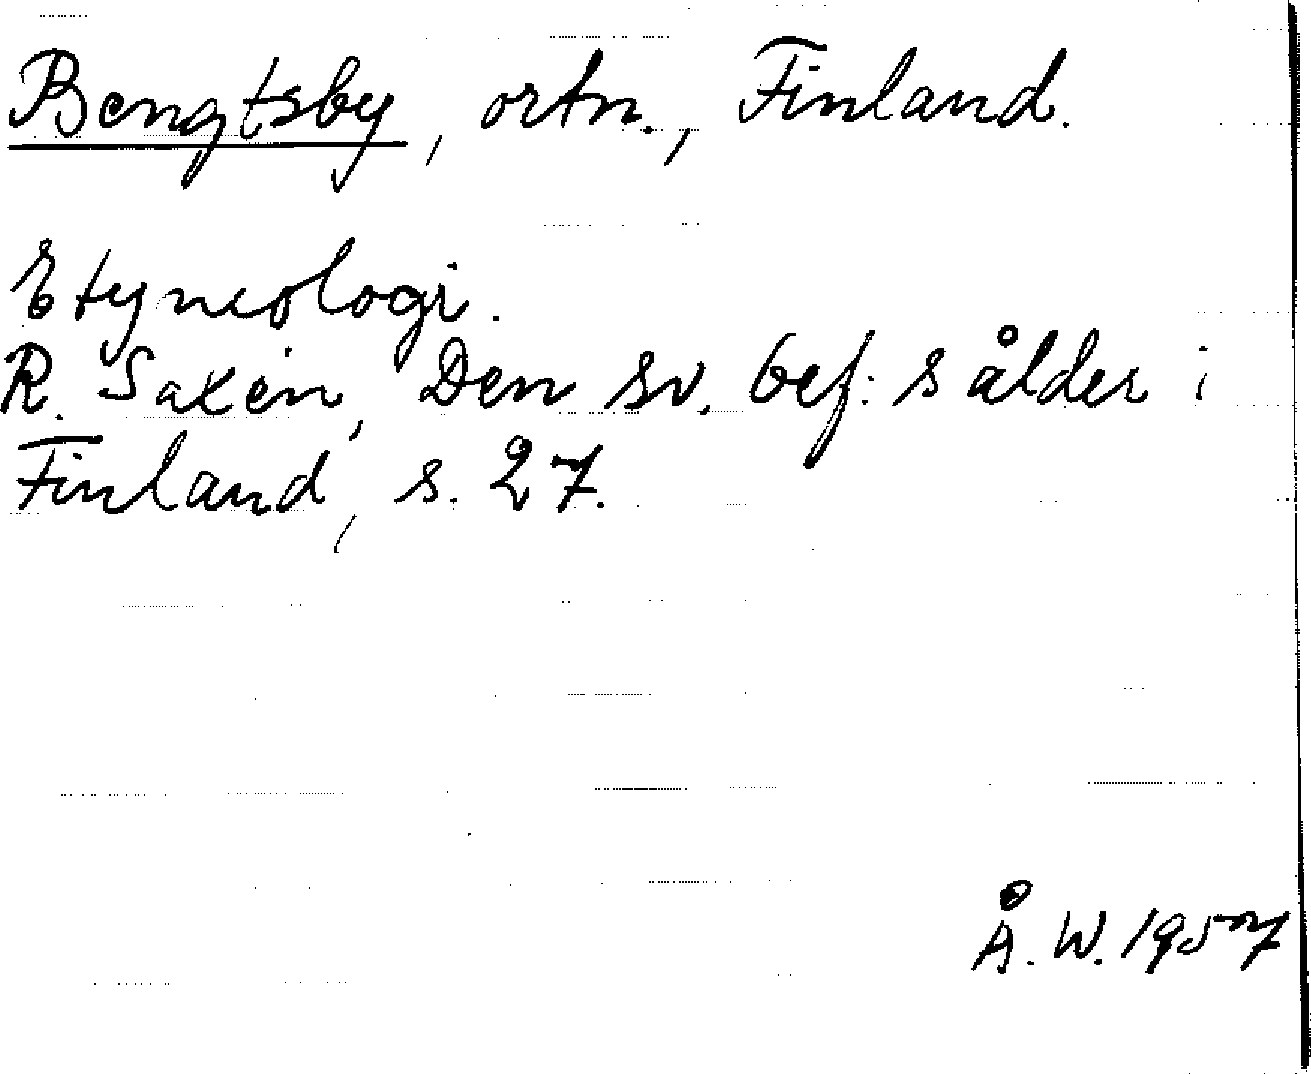 Bengtsby, ortn., Finland.
Etymologi.
R. Saxén, Den sv. bef:s ålder i
Finland, s. 27.
Å. W. 1957